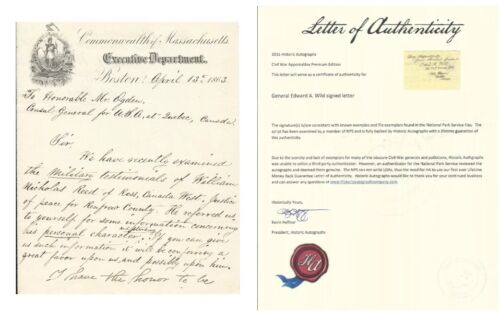 Commonwealth of Massachusetts
Executive Department.
Boston, April 13th 1863
To Honorable Mr. Ogden,
Consul General for U.S.A. at Quebec, Canada.
Sir.
We have recently examined
the Military testimonials of William
Nicholas Reed of Ross, Canada West, Justice
of peace for Renfrew County. He referred us
to yourself for some information concerning
his personal character. If you can give
us such information it will be conferring a
great favor upon us, and possibly upon him.
I have the honor to be
Letter of Authenticity
Historic Autographs
Civil War Appomattox Premium Edition
This letter will serve as a certificate of authenticity for
General Edward A. Wild signed letter
The signature(s) is/are consistent with known examples and file exemplars found in the National Park Service files. The
has been examined by a member of NPS and is fully backed by Historic Autographs with a lifetime guarantee of
authenticity.
Due to the scarcity and lack of exemplars for many of the obscure Civil War generals and politicians, Historic Autographs
was unable to utilize a third-party authenticator. However, an authenticator for the National Park Service reviewed the
autographs and deemed them genuine.
Money Back Guarantee! Letter of Authenticity. Historic Autographs would like to thank you for your continued business and
can answer any questions at
Historically Yours,
Kevin Heffner
President, Historic Autographs
HA